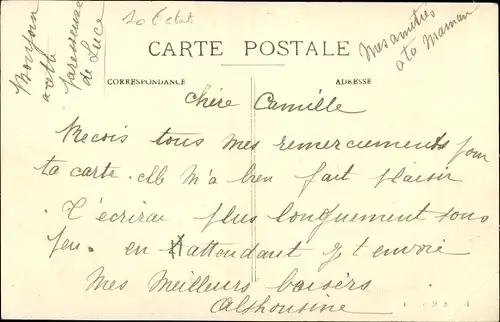 Bonjour
paresseuse
de Luce
Mes amitiés
à ta Maman
CARTE POSTALE
CORRESPONDANCE
ADRESSE
Chère Camille
Recois tous mes remerciements pour
ta carte. elle m'a bien fait plaisir
T'écrirai plus longuement sous
peu. en attendant je t'envoie
Mes Meilleurs baisers
Alphonsine